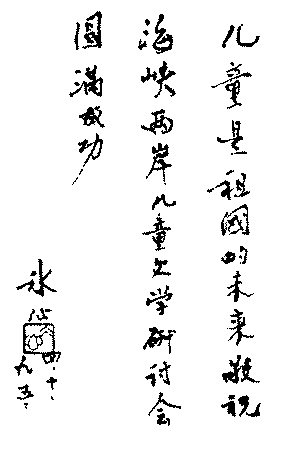 儿童是祖國的未来敬祝
海峡两岸儿童文学研讨会
圆满成功
冰心
四、十、
九五、